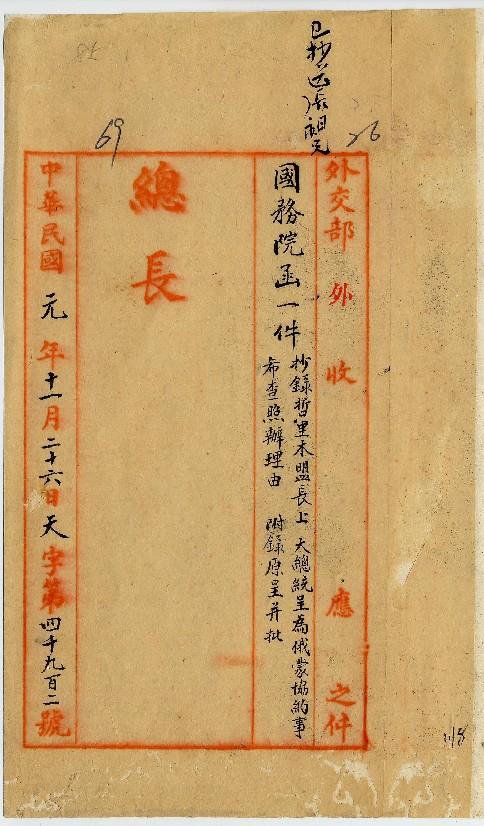 已抄送張親元
26
外交部 外 收 應 之件
國務院函一件
抄錄哲里木盟長上 大總統呈為俄蒙協約事
希查照辦理由 附錄原呈并批
總長
69
中華民國 元 年 十一 月 二十六 日 天 字第 四千九百二 號